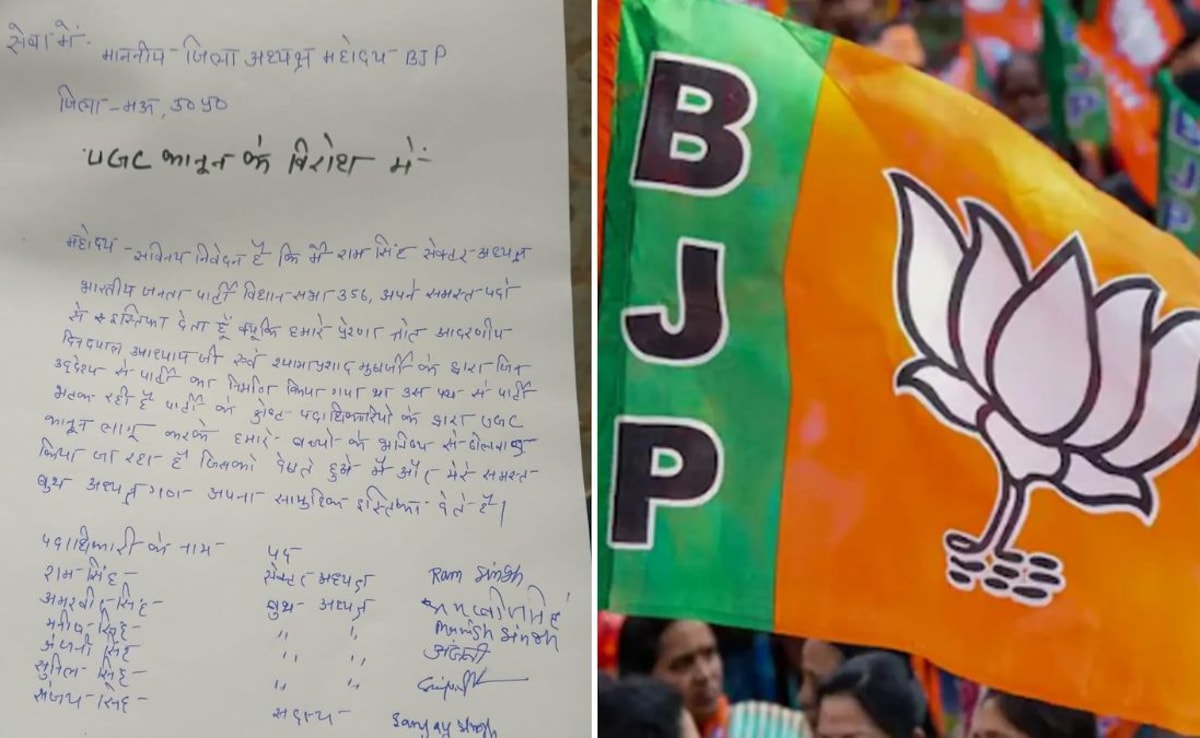 सेवा में.
माननीय जिला अध्यक्ष महोदय BJP
जिला - मऊ, उ०प्र०
UGC कानून के विरोध में
महोदय - सविनय निवेदन है कि मैं राम सिंह सेक्टर अध्यक्ष
भारतीय जनता पार्टी विधान सभा 356, अपने समस्त पदो
से इस्तिफा देता हूँ क्यूंकि हमारे प्रेरणा स्रोत आदरणीय
दिनदयाल उपाध्याय जी एवं श्यामाप्रसाद मुखर्जी के द्वारा जिन
उद्देश्य से पार्टी का निर्माण किया गया था उस पथ से पार्टी
भटक रही है पार्टी के पदाधिकारियो के द्वारा UGC
कानून लागू करके हमारे बच्चो के भविष्य से खेलवाड़
किया जा रहा है जिसको देखते हुऐ मैं और मेरे समस्त
बुथ अध्यक्ष गण अपना सामुहिक इस्तिफा देते है।
पदाधिकारी के नाम - पद
राम सिंह - सेक्टर अध्यक्ष Ram Singh
अमरजीत सिंह - बुथ अध्यक्ष
मनीष सिंह - " " Manish Singh
अंजनी सिंह " " अंजनी
सुनिल सिंह - " "
संजय सिंह - सदस्य - Sanjay Singh
BJP